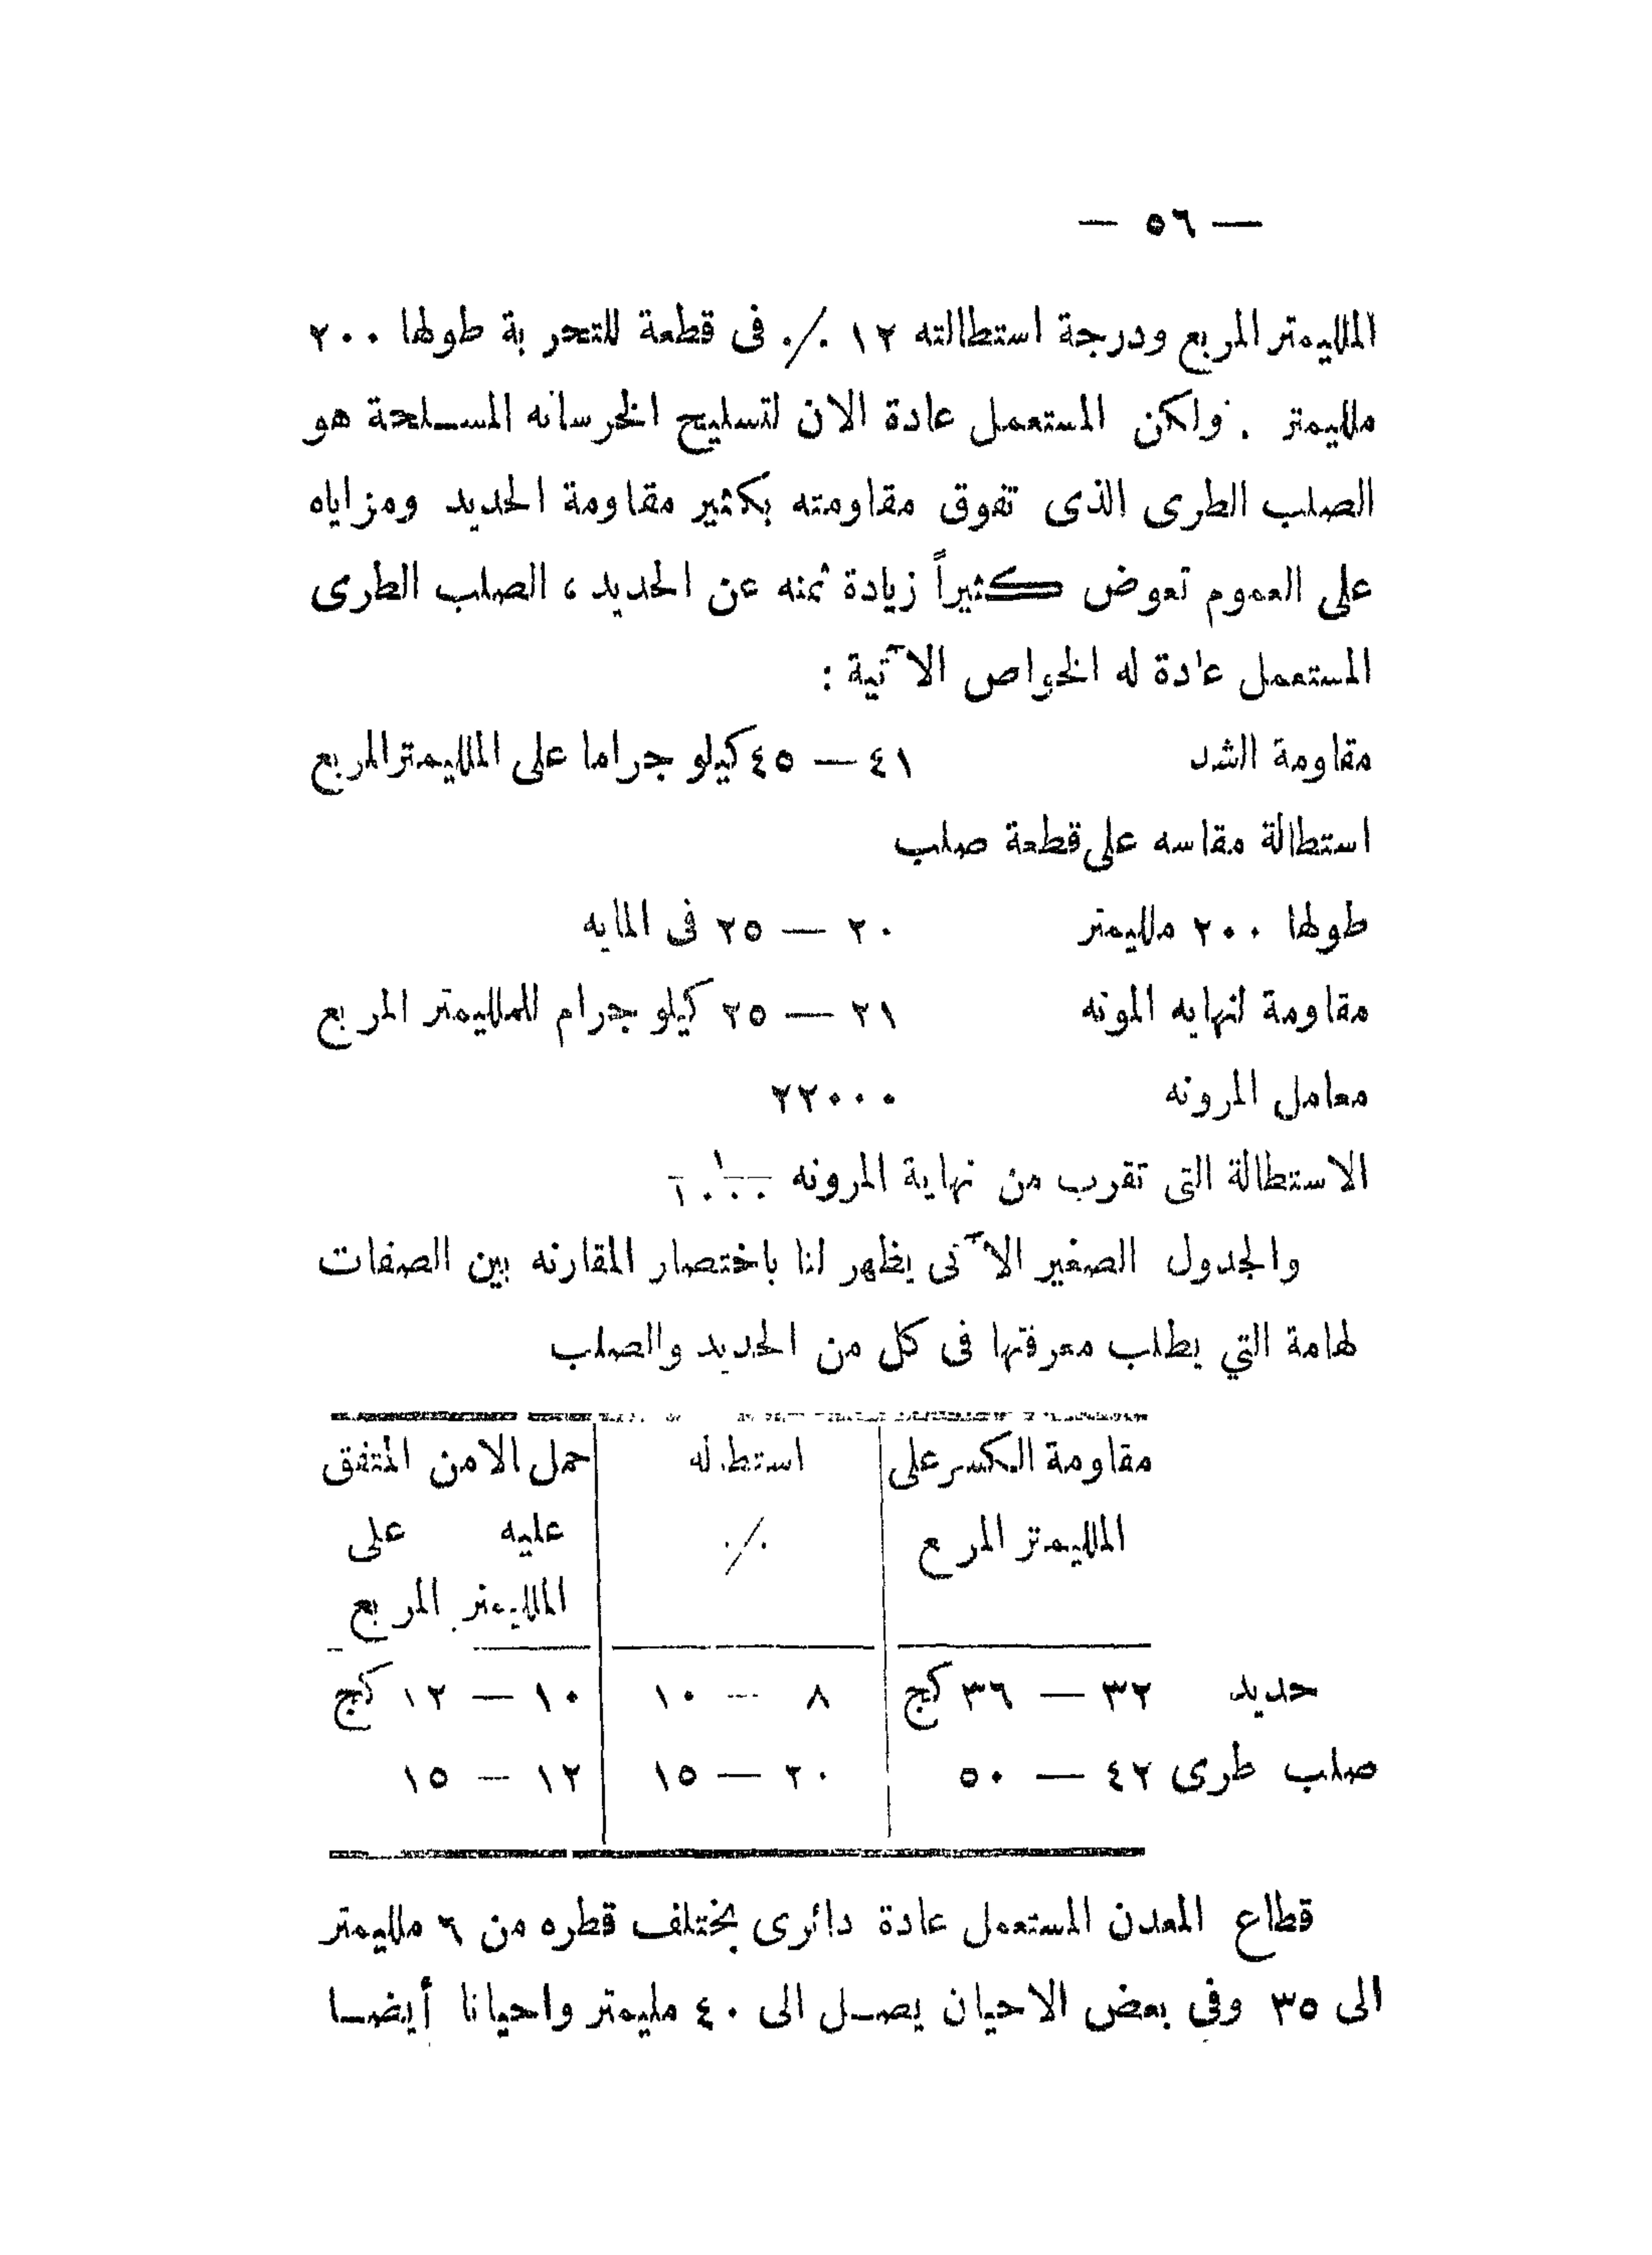 — ٥٦ —
الملليمتر المربع ودرجة استطالته ١٢ ٪ فى قطعة للتجربة طولها ٢٠٠
ملليمتر . ولكن المستعمل عادة الان لتسليح الخرسانه المسلحة هو
الصلب الطرى الذى تفوق مقاومته بكثير مقاومة الحديد ومزاياه
على العموم تعوض كثيراً زيادة ثمنه عن الحديد ، الصلب الطرى
المستعمل عادة له الخواص الآتية :
مقاومة الشد ٤١ — ٤٥ كيلو جراما على الملليمتر المربع
استطالة مقاسه على قطعة صلب
طولها ٢٠٠ ملليمتر ٢٠ — ٢٥ فى المايه
مقاومة لنهايه المونه ٢١ — ٢٥ كيلو جرام للملليمتر المربع
معامل المرونه ٢٢٠٠٠
الاستطالة التى تقرب من نهاية المرونه
والجدول الصغير الآتى يظهر لنا باختصار المقارنه بين الصفات
لهامة التي يطلب معرفتها فى كل من الحديد والصلب
مقاومة الكسر على استطاله حمل الامن المتفق
الملليمتر المربع ٪ عليه على
الملليمتر المربع
حديد ٣٢ — ٣٦ كج ٨ — ١٠ ١٠ — ١٢ كج
صلب طرى ٤٢ — ٥٠ ٢٠ — ١٥ ١٢ — ١٥
قطاع المعدن المستعمل عادة دائرى يختلف قطره من ٦ ملليمتر
الى ٣٥ وفى بعض الاحيان يصل الى ٤٠ مليمتر واحيانا أيضا